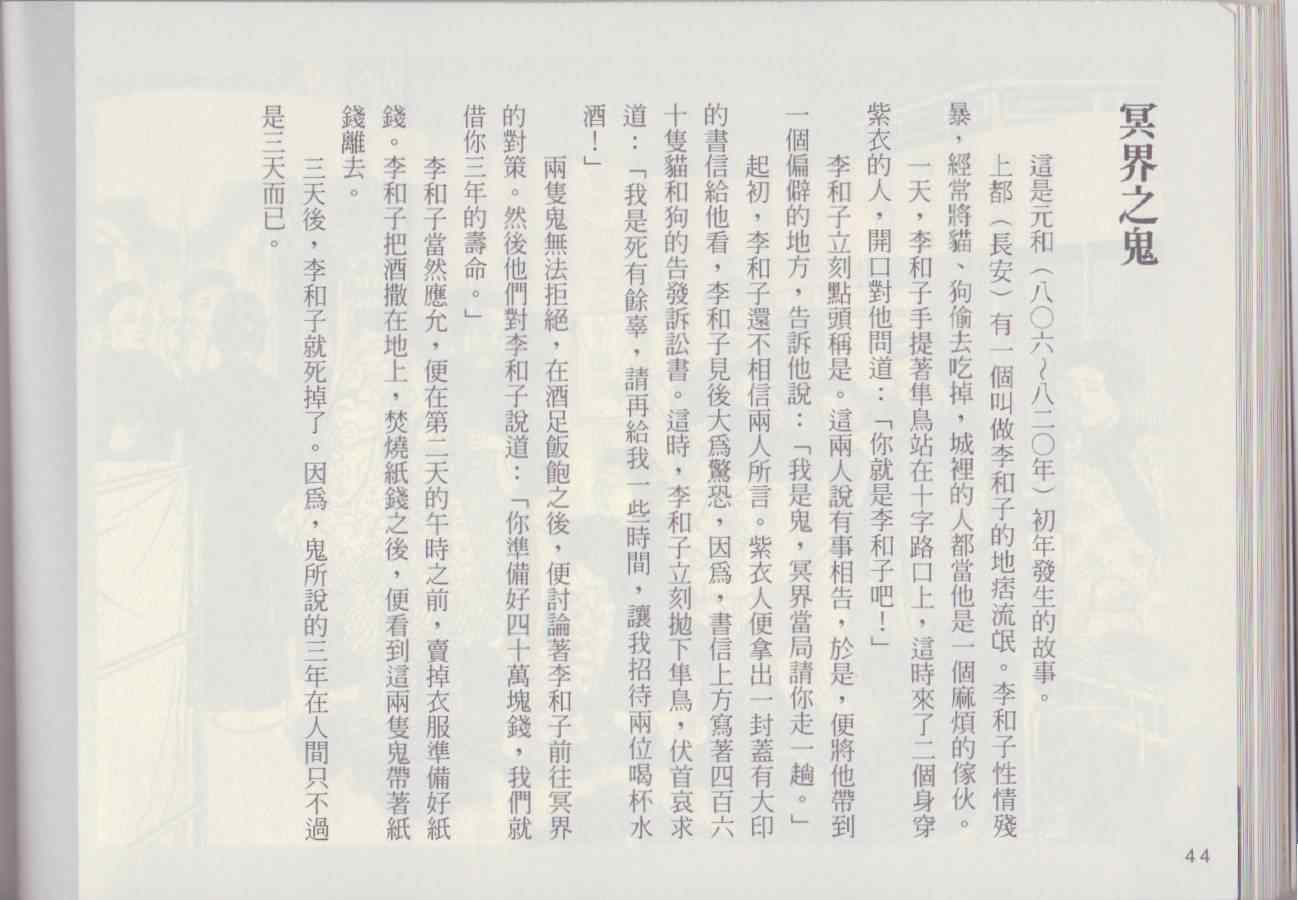 冥界之鬼
這是元和（八〇六～八二〇年）初年發生的故事。
上都（長安）有一個叫做李和子的地痞流氓。李和子性情殘
暴，經常將貓、狗偷去吃掉，城裡的人都當他是一個麻煩的傢伙。
一天，李和子手提著隼鳥站在十字路口上，這時來了二個身穿
紫衣的人，開口對他問道：「你就是李和子吧！」
李和子立刻點頭稱是。這兩人說有事相告，於是，便將他帶到
一個偏僻的地方，告訴他說：「我是鬼，冥界當局請你走一趟。」
起初，李和子還不相信兩人所言。紫衣人便拿出一封蓋有大印
的書信給他看，李和子見後大爲驚恐，因爲，書信上方寫著四百六
十隻貓和狗的告發訴訟書。這時，李和子立刻拋下隼鳥，伏首哀求
道：「我是死有餘辜，請再給我一些時間，讓我招待兩位喝杯水
酒！」
兩隻鬼無法拒絕，在酒足飯飽之後，便討論著李和子前往冥界
的對策。然後他們對李和子說道：「你準備好四十萬塊錢，我們就
借你三年的壽命。」
李和子當然應允，便在第二天的午時之前，賣掉衣服準備好紙
錢。李和子把酒撒在地上，焚燒紙錢之後，便看到這兩隻鬼帶著紙
錢離去。
三天後，李和子就死掉了。因爲，鬼所說的三年在人間只不過
是三天而已。
44